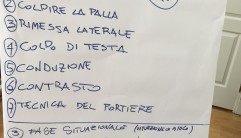 ② COLPIRE LA PALLA
③ RIMESSA LATERALE
④ COLPO DI TESTA
⑤ CONDUZIONE
⑥ CONTRASTO
⑦ TECNICA DEL PORTIERE
③ FASE SITUAZIONALE